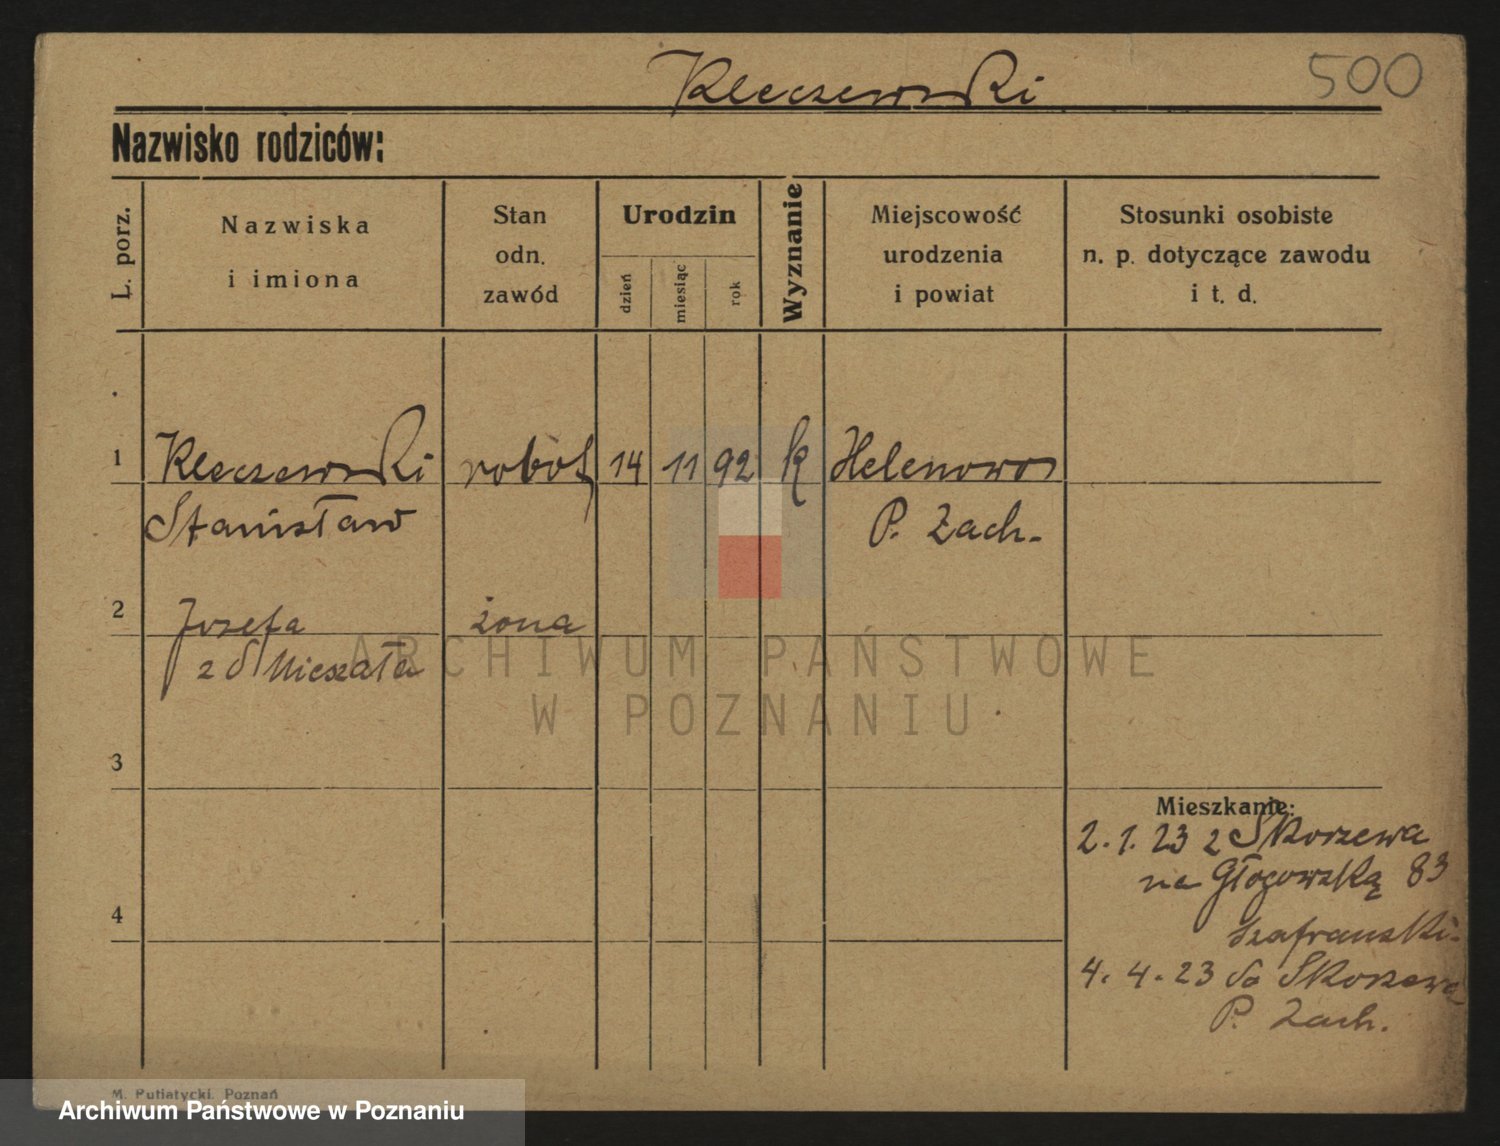 Kleczewski
500
Nazwisko rodziców:
L. porz.
Nazwiska
i imiona
Stan
odn.
zawód
Urodzin
dzień
miesiąc
rok
Wyznanie
Miejscowość
urodzenia
i powiat
Stosunki osobiste
n. p. dotyczące zawodu
i t. d.
1 Kleczewski robot 14 11 92 k Helenowo
Stanisław P. Zach.
2 Józefa żona
z d
ARCHIWUM PAŃSTWOWE
W POZNANIU
3
Mieszkanie:
2. 1. 23 z Skorzewa
na Głogowską 83
Szafranski.
4
4. 4. 23 do Skorzewa
P. Zach.
M. Putiatycki, Poznań
Archiwum Państwowe w Poznaniu